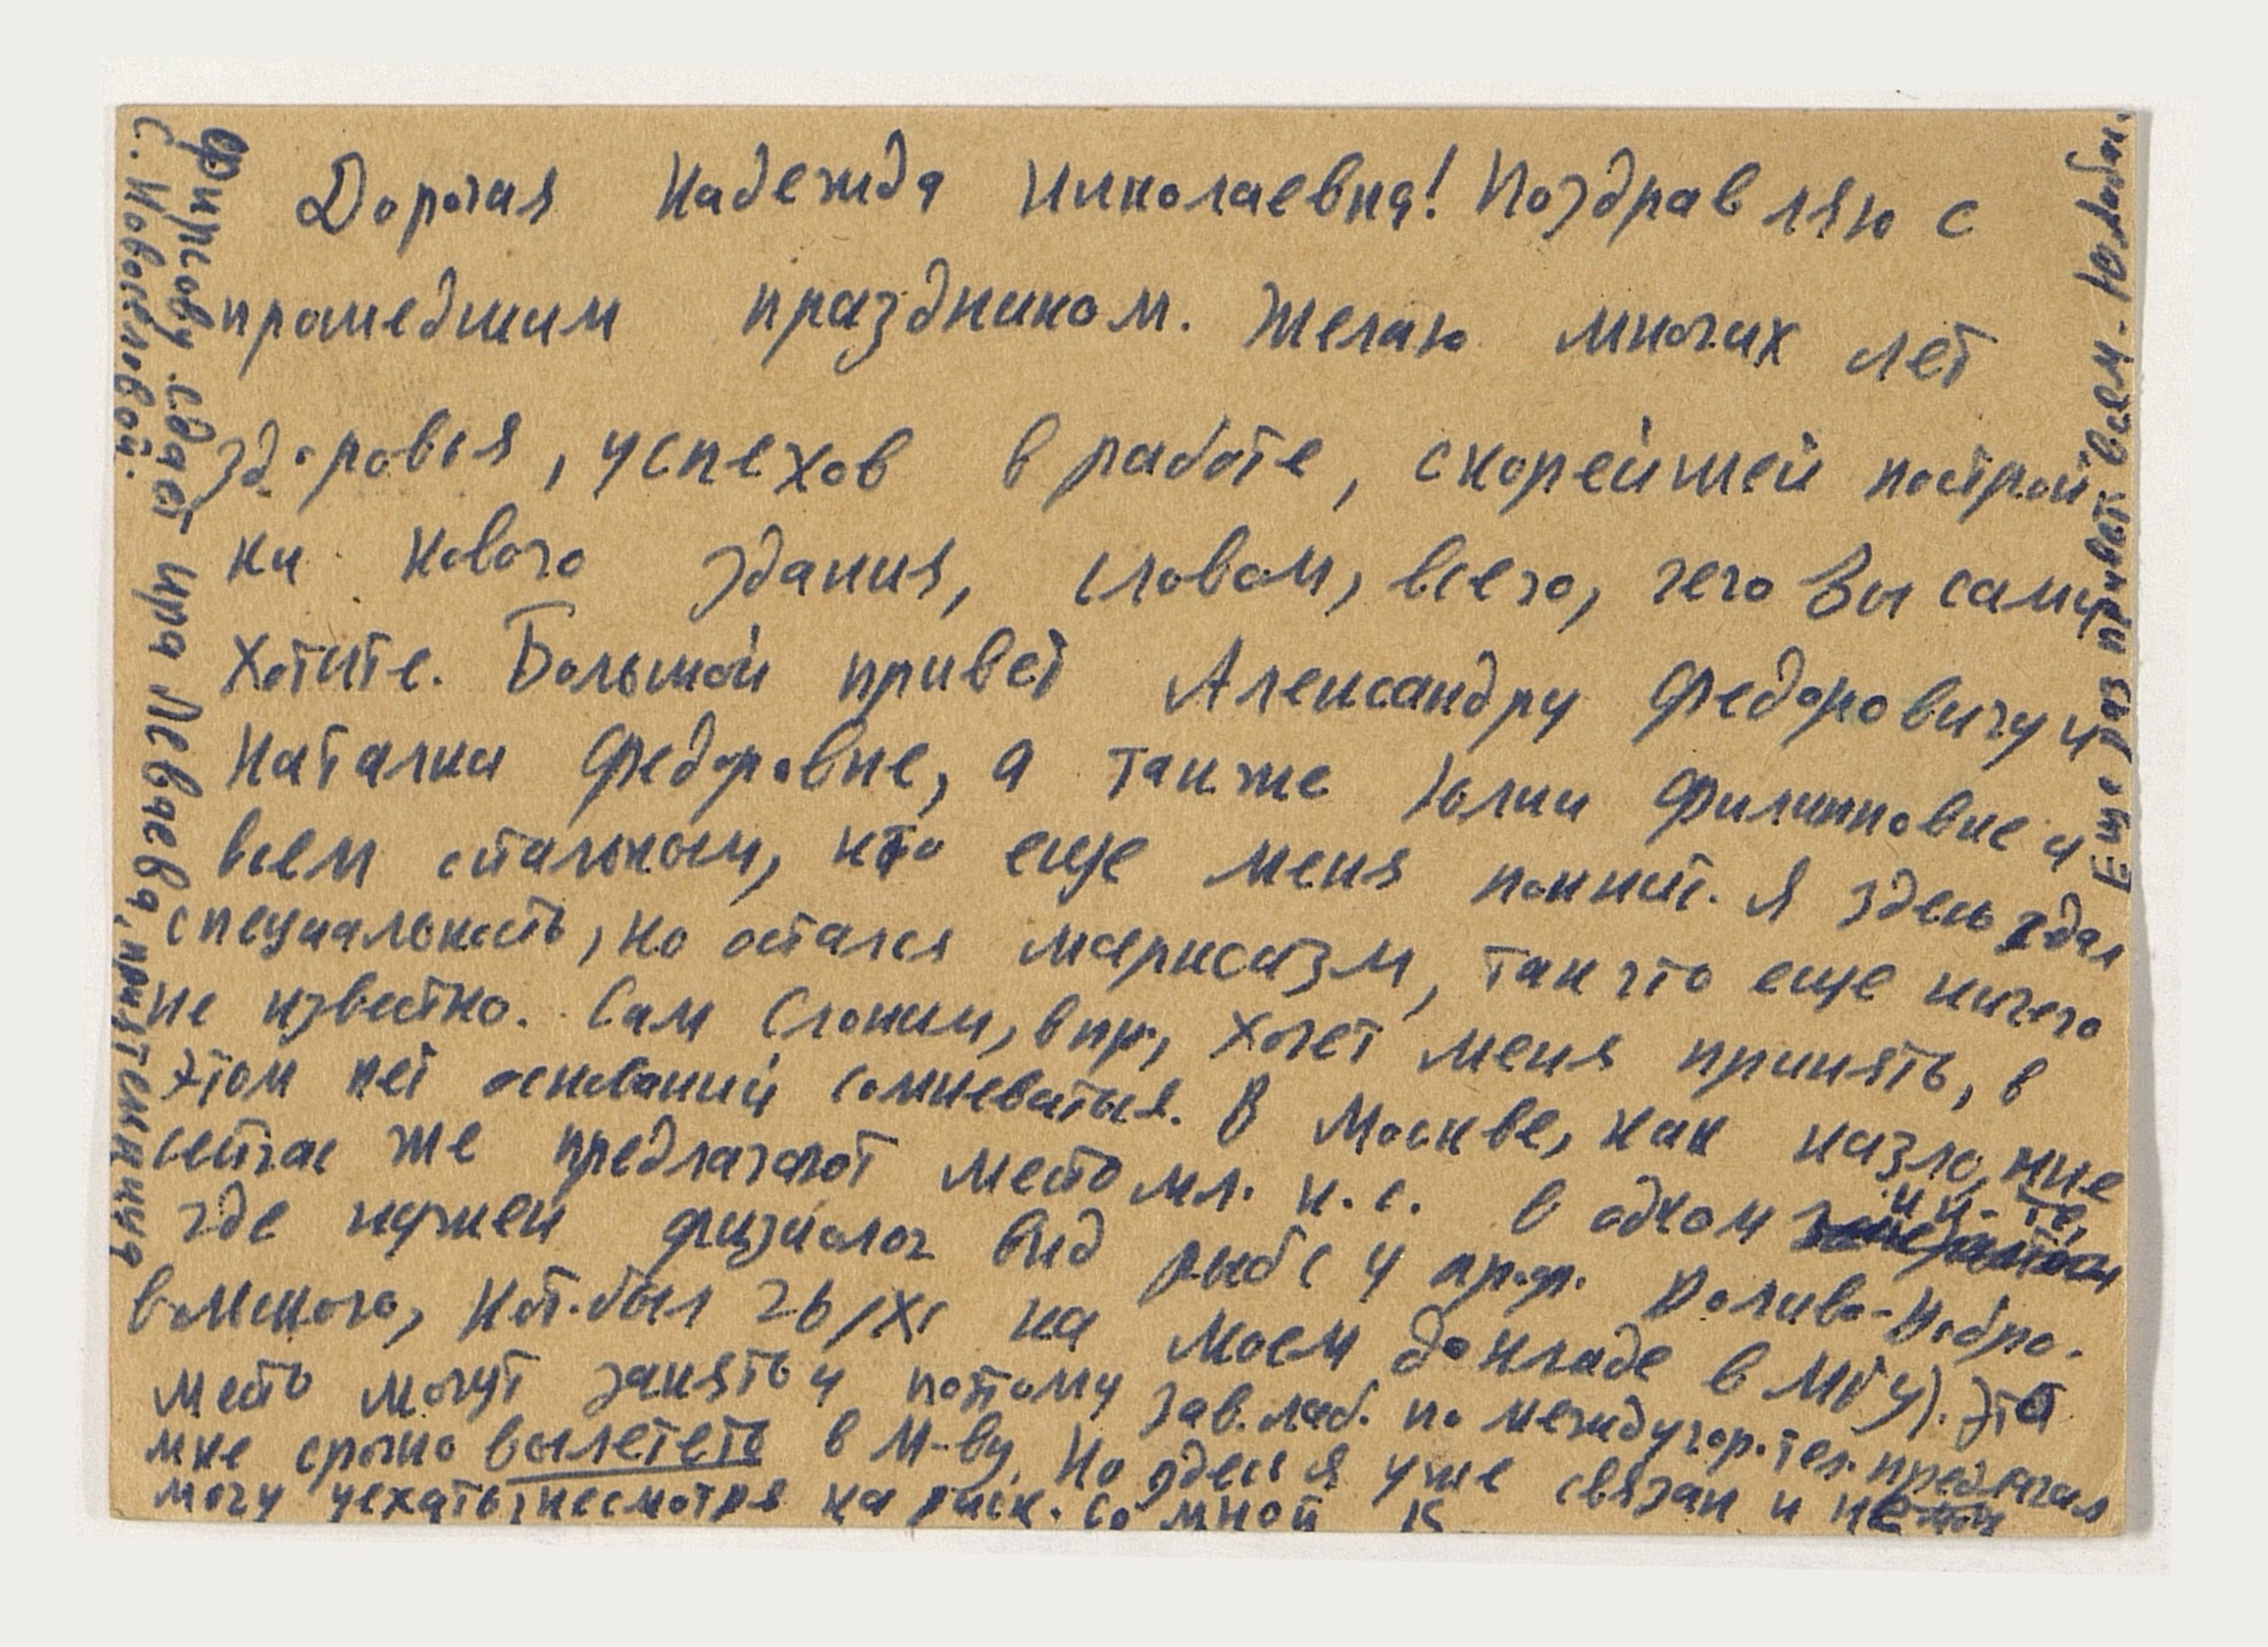 Дорогая Надежда Николаевна! Поздравляю с
прошедшим праздником. Желаю многих лет
здоровья, успехов в работе, скорейшей построй-
ки нового здания, словом, всего, чего Вы сами
хотите. Большой привет Александру Федоровичу и
Наталии Федоровне, а также Юлии Филипповне и
всем остальным, кто еще меня помнит. Я здесь сдал
специальность, но остался марксизм, так что еще ничего
не известно. Сам Слоним, впр., хочет меня принять, в
этом нет оснований сомневаться. В Москве, как назло, мне
сейчас же предлагают место мл. н. с. в одном ин-те,
где нужен физиолог рыб (у проф. Доливо-Добро-
вольского, кот. был 26/XI на моем докладе в МГУ). Это
место могут занять и потому зав. лаб. по междугор. тел. предлагал
мне срочно вылететь в М-ву. Но здесь я уже связан и не
могу уехать, несмотря на риск. Со мной к
Фирсову сдает Ира Леваева, приятельница
С. Новоселовой.
Еще раз привет всем. Ю. Лабас.